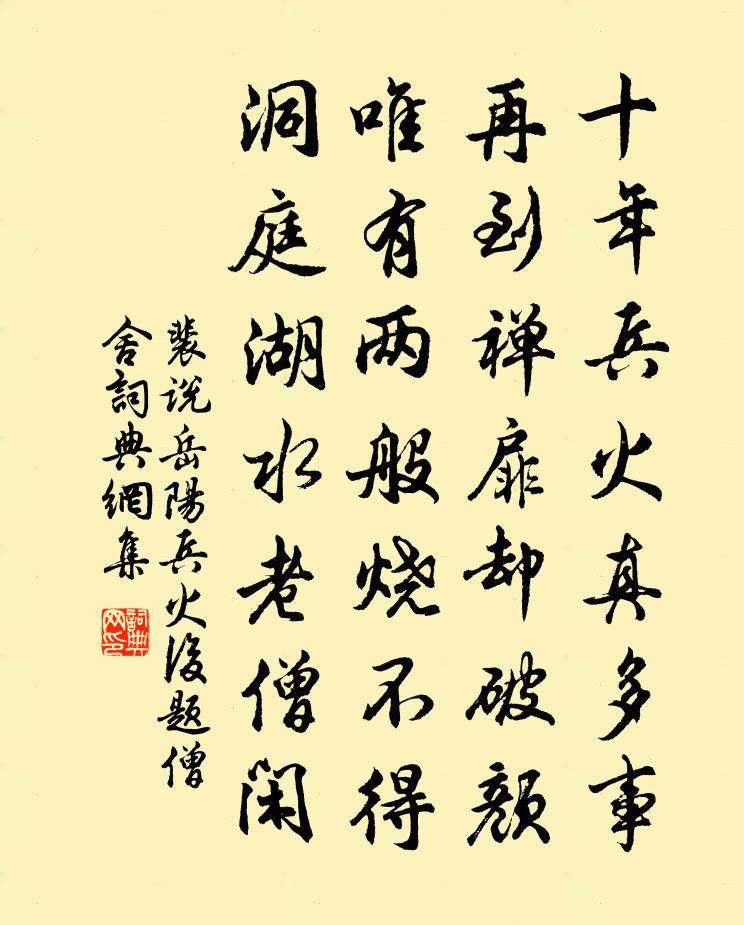 十年兵火真多事
再到禅扉却破颜
唯有两般烧不得
洞庭湖水老僧闲
裴说岳陽兵火後題僧
舍詞典網集
詞典网印